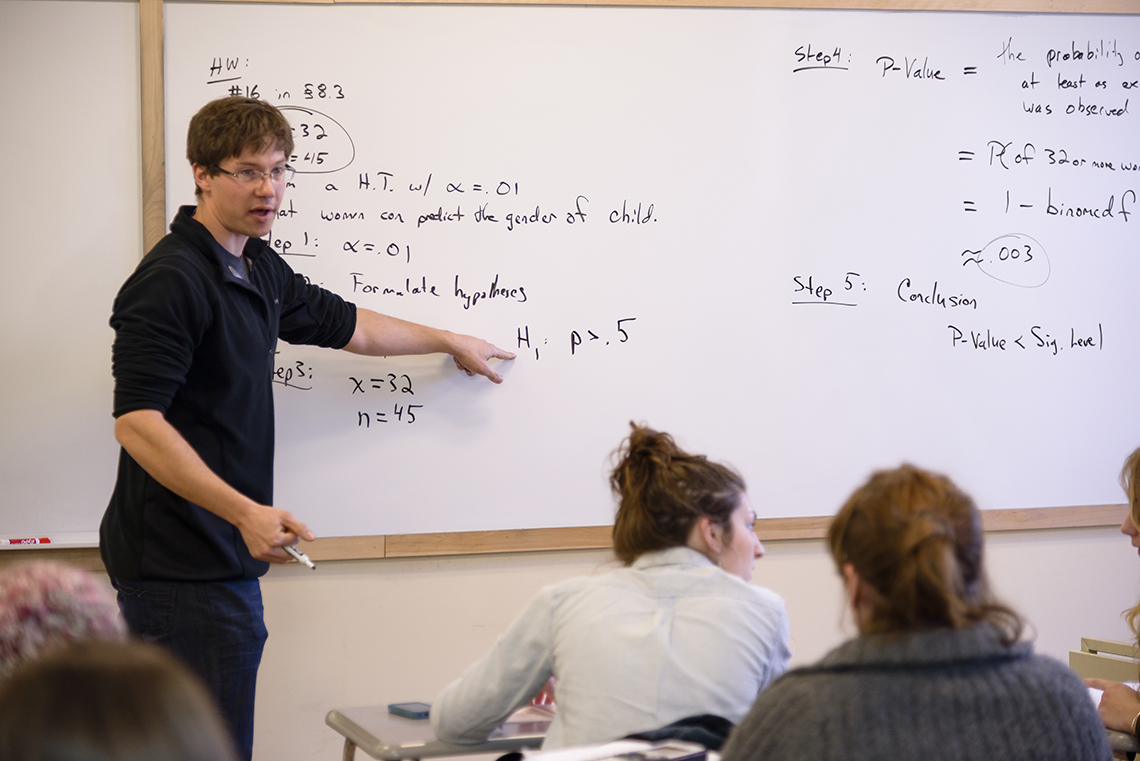 HW:
#16 in §8.3
=32
=45
a H.T. w/ α=.01
at women can predict the gender of child.
ep 1: α=.01
: Formulate hypotheses
H1: p>.5
tep3:
x=32
n=45
Step4: P-Value = the probability o
at least as ex
was observed
= P(of 32 or more wo
= 1 - binomcdf
≈ .003
Step 5: Conclusion
P-Value < Sig. Level